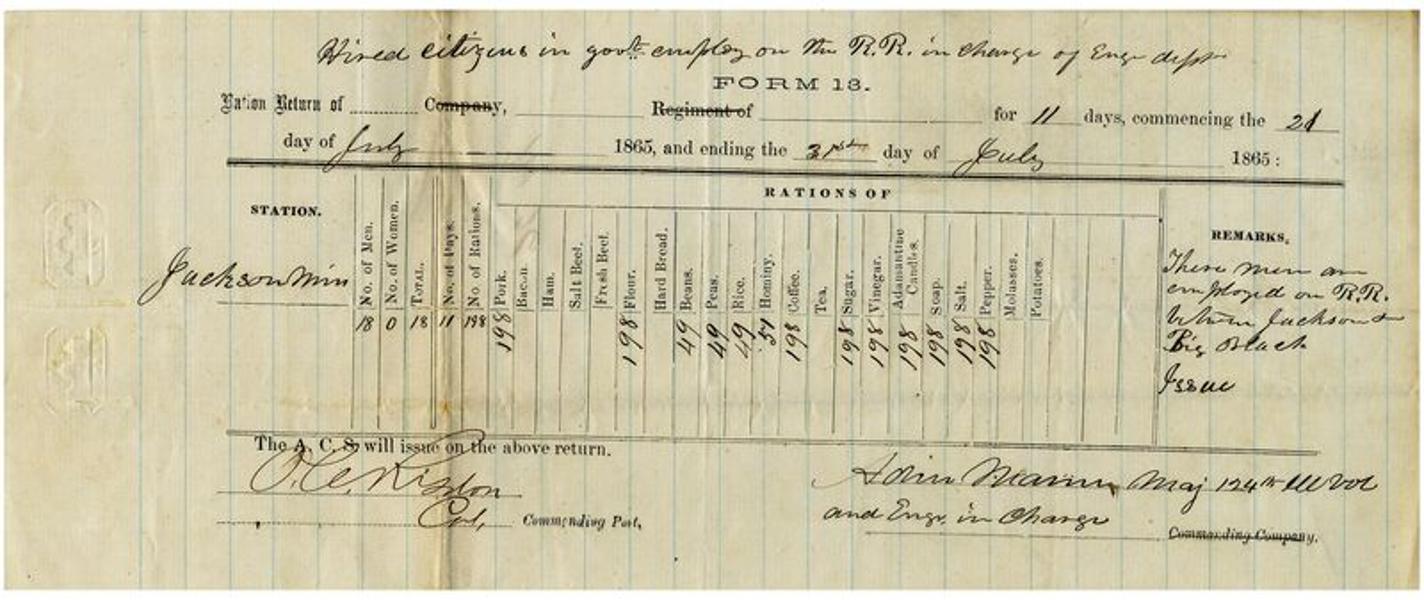 Hired citizens in govt. employ on the R.R. in charge of Engr dept
FORM 13.
Ration Return of Company, Regiment of for 11 days, commencing the 21
day of July 1865, and ending the 31st day of July 1865:
RATIONS OF
STATION. No. of Men. No. of Women. TOTAL. No. of Days. No of Rations. Pork. Bacon. Ham. Salt Beef. Fresh Beef. Flour. Hard Bread. Beans. Peas. Rice. Hominy. Coffee. Tea. Sugar. Vinegar. Adamantine Candles. Soap. Salt. Pepper. Molasses. Potatoes. REMARKS.
Jackson Miss
18 0 18 11 198 198 198 49 49 49 51 198 198 198 198 198 198 198
These men are
employed on R.R.
between Jackson &
Big Black
Issue
The A. C. S. will issue on the above return.
Col, Commanding Post,
Maj 124th Ill Vol
and Engr. in Charge
Commanding Company.